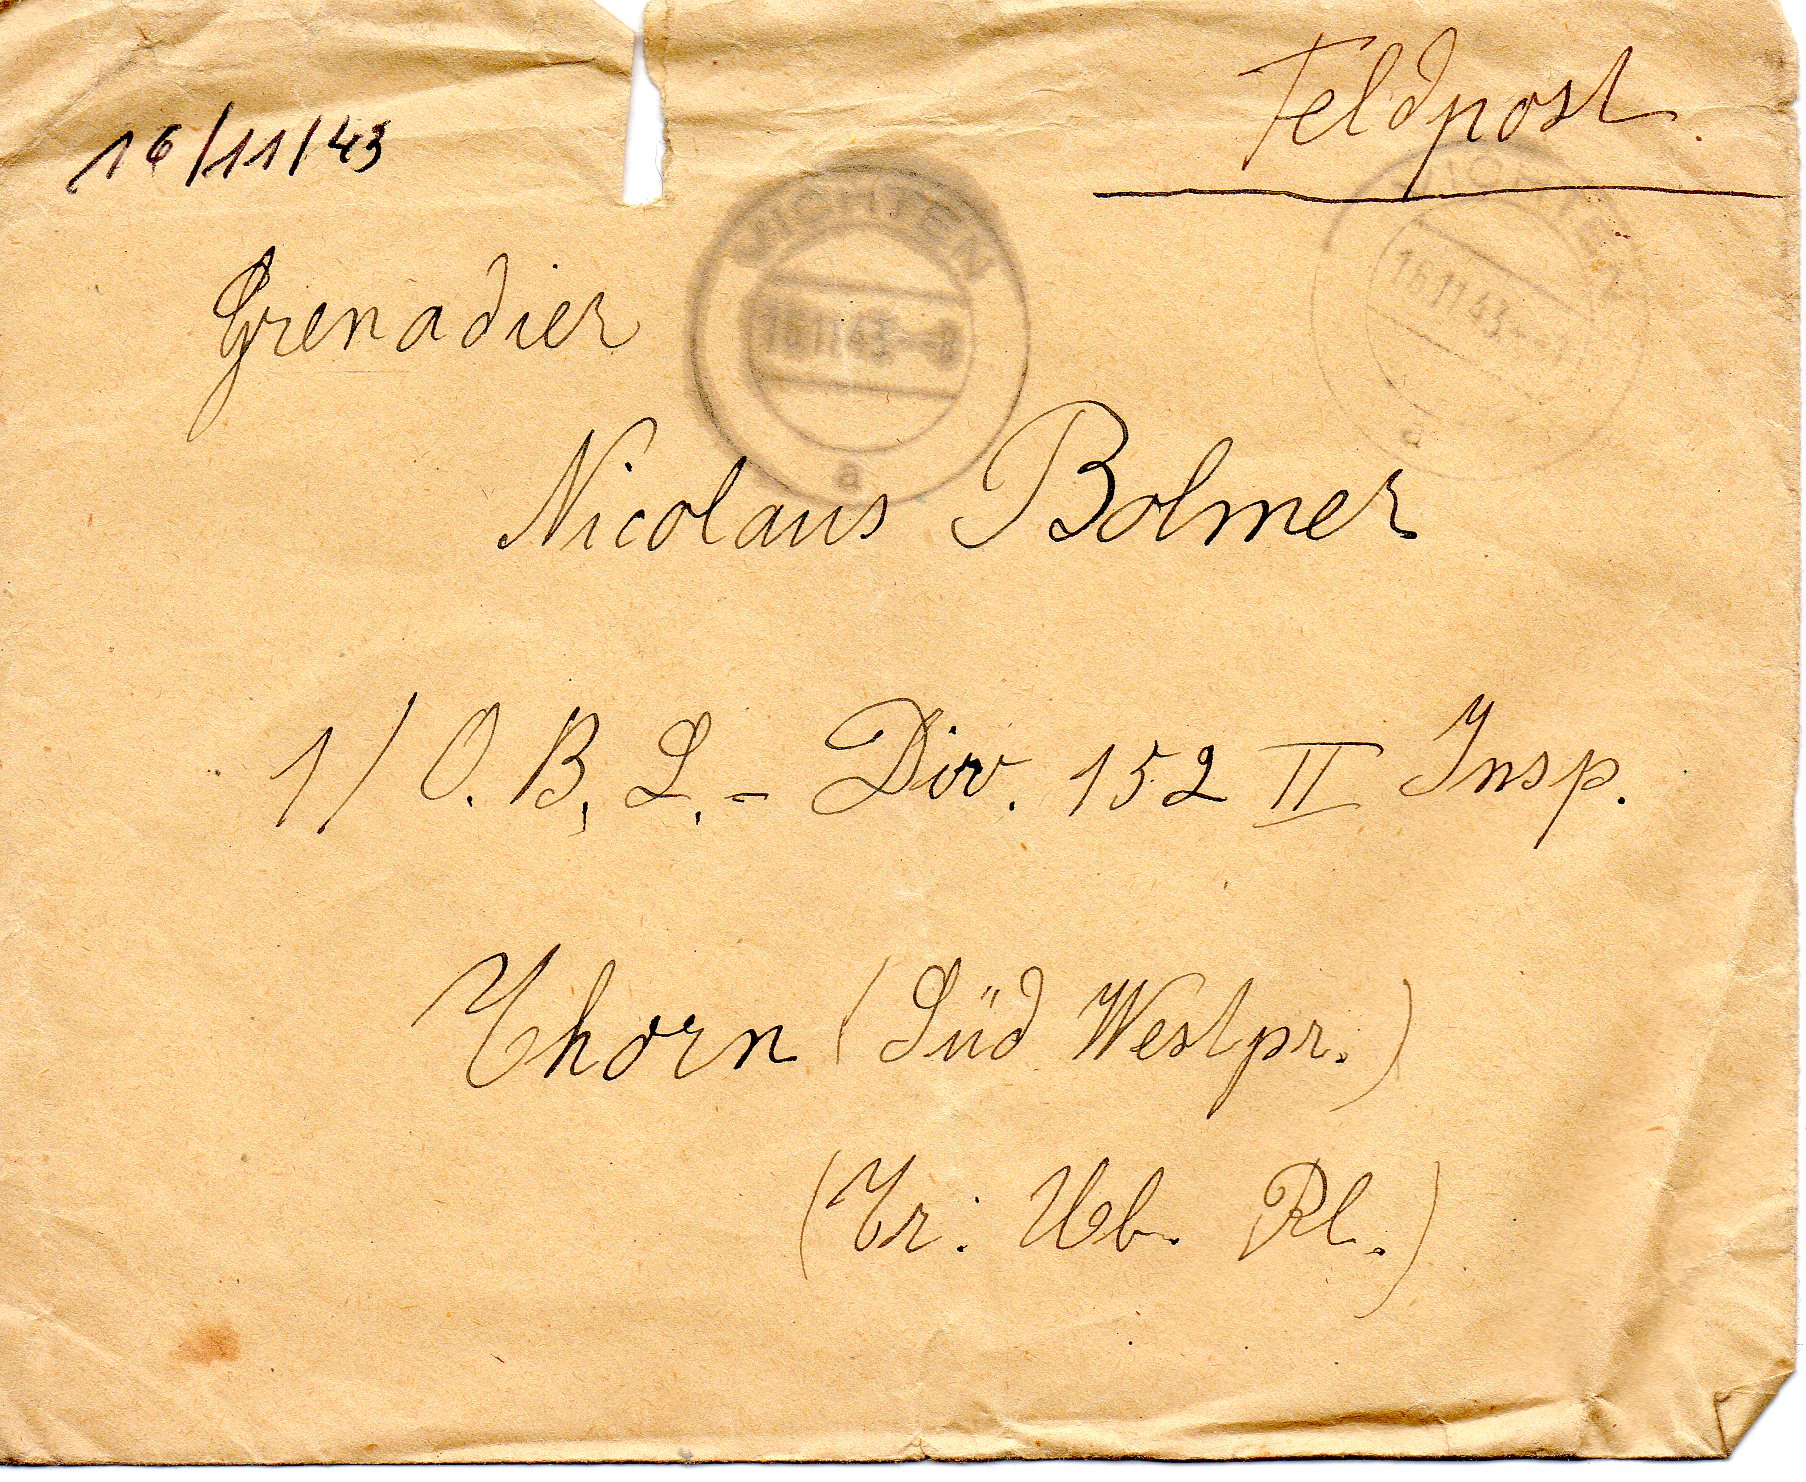 Feldpost
16/11/43
VICHTEN
16.11.43--8
a
VICHTEN
16.11.43
a
Grenadier
Nicolaus Bolmer
1/ O. B. L. - Div. 152 II Insp.
Thorn (Süd Westpr.)
(Tr: Ueb. Pl.)